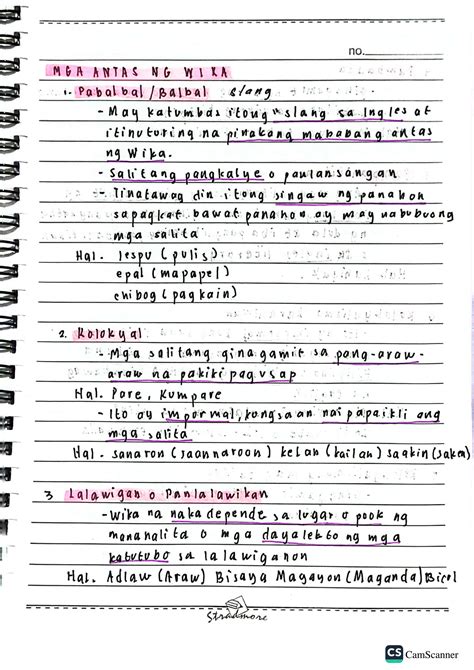 no.
MGA ANTAS NG WIKA
1. Pabalbal/Balbal slang
- May katumbas itong "slang sa Ingles at
itinuturing na pinakang mababang antas
ng Wika.
- Salitang pangkalye o paulansangan
- Tinatawag din itong singaw ng panahon
sapagkat bawat panahon ay may nabubuong
mga salita
Hal. lespu (pulis)
epal (mapapel)
chibog (pagkain)
2. Kolokyal
- Mga salitang ginagamit sa pang-araw-
araw na pakikipagusap
Hal. Pare, Kumpare
- Ito ay impormal, kungsaan naipapaikli ang
mga salita
Hal. sanaron (saannaroon) kelan (kailan) saakin (sakin)
3 Lalawigan o Panlalawikan
- Wika na nakadepende sa lugar o pook ng
mananalita o mga dayalekto ng mga
katutubo sa lalawiganon
Hal. Adlaw (Araw) Bisaya Magayon (Maganda) Bicol
Stradmore
CS CamScanner